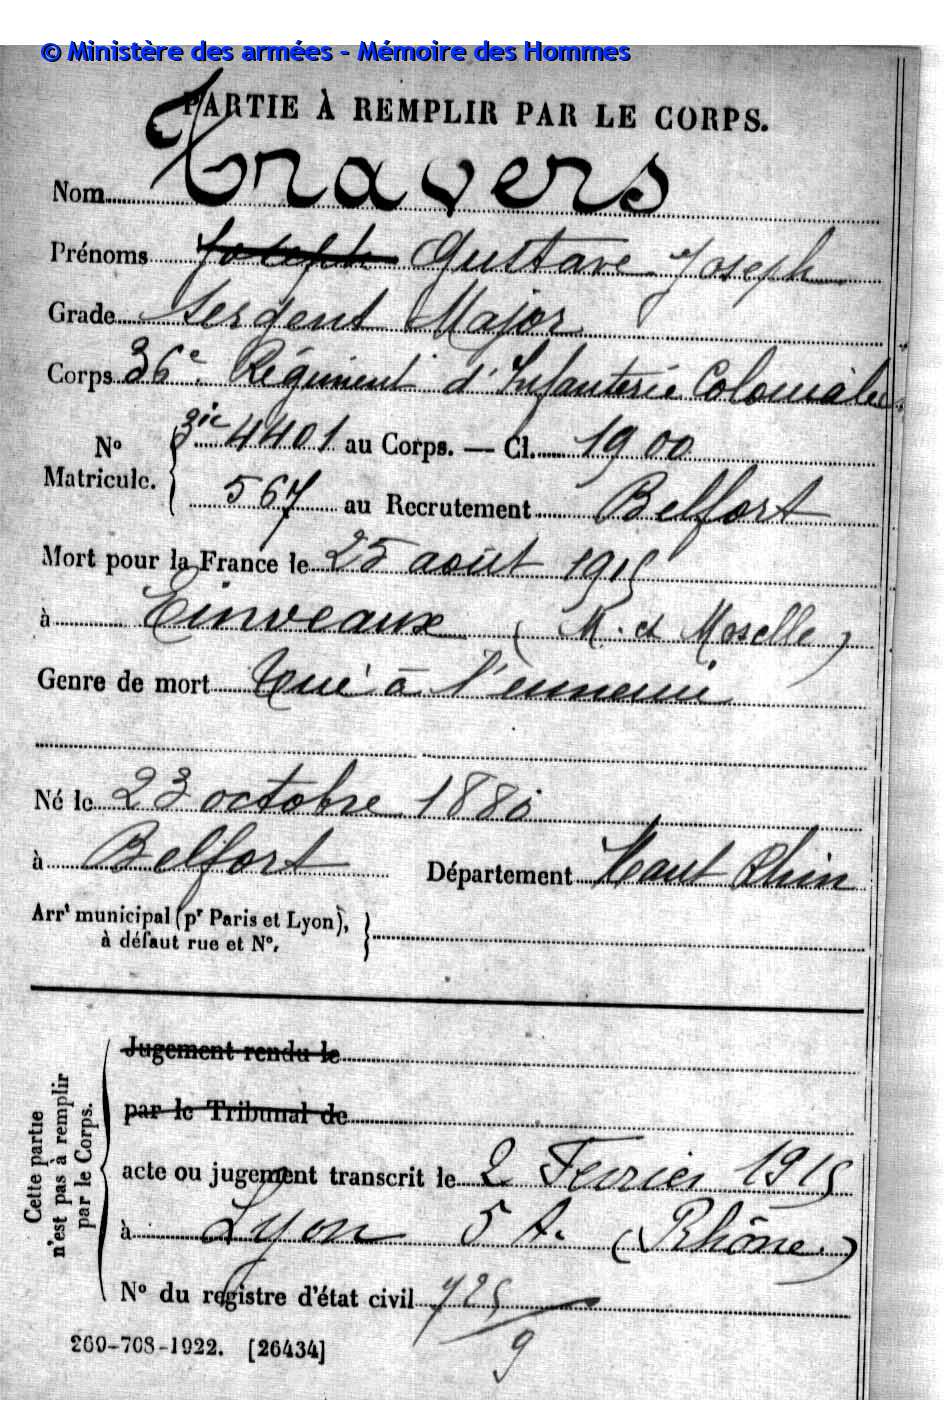 © Ministère des armées - Mémoire des Hommes
PARTIE À REMPLIR PAR LE CORPS.
Nom Travers
Prénoms Joseph Gustave Joseph
Grade Sergent Major
Corps 36e Régiment d'Infanterie Coloniale
No Matricule. { 3ic 4401 au Corps. — Cl. 1900
567 au Recrutement Belfort
Mort pour la France le 25 août 1915
à Einveaux (M. et Moselle)
Genre de mort Tué à l'ennemi
Né le 23 octobre 1880
à Belfort Département Haut Rhin
Arrt municipal (pr Paris et Lyon),
à défaut rue et No.
Cette partie n'est pas à remplir par le Corps.
Jugement rendu le
par le Tribunal de
acte ou jugement transcrit le 2 Fevrier 1915
à Lyon 5 A. (Rhône.)
No du registre d'état civil 725
9
260-708-1922. [26434]